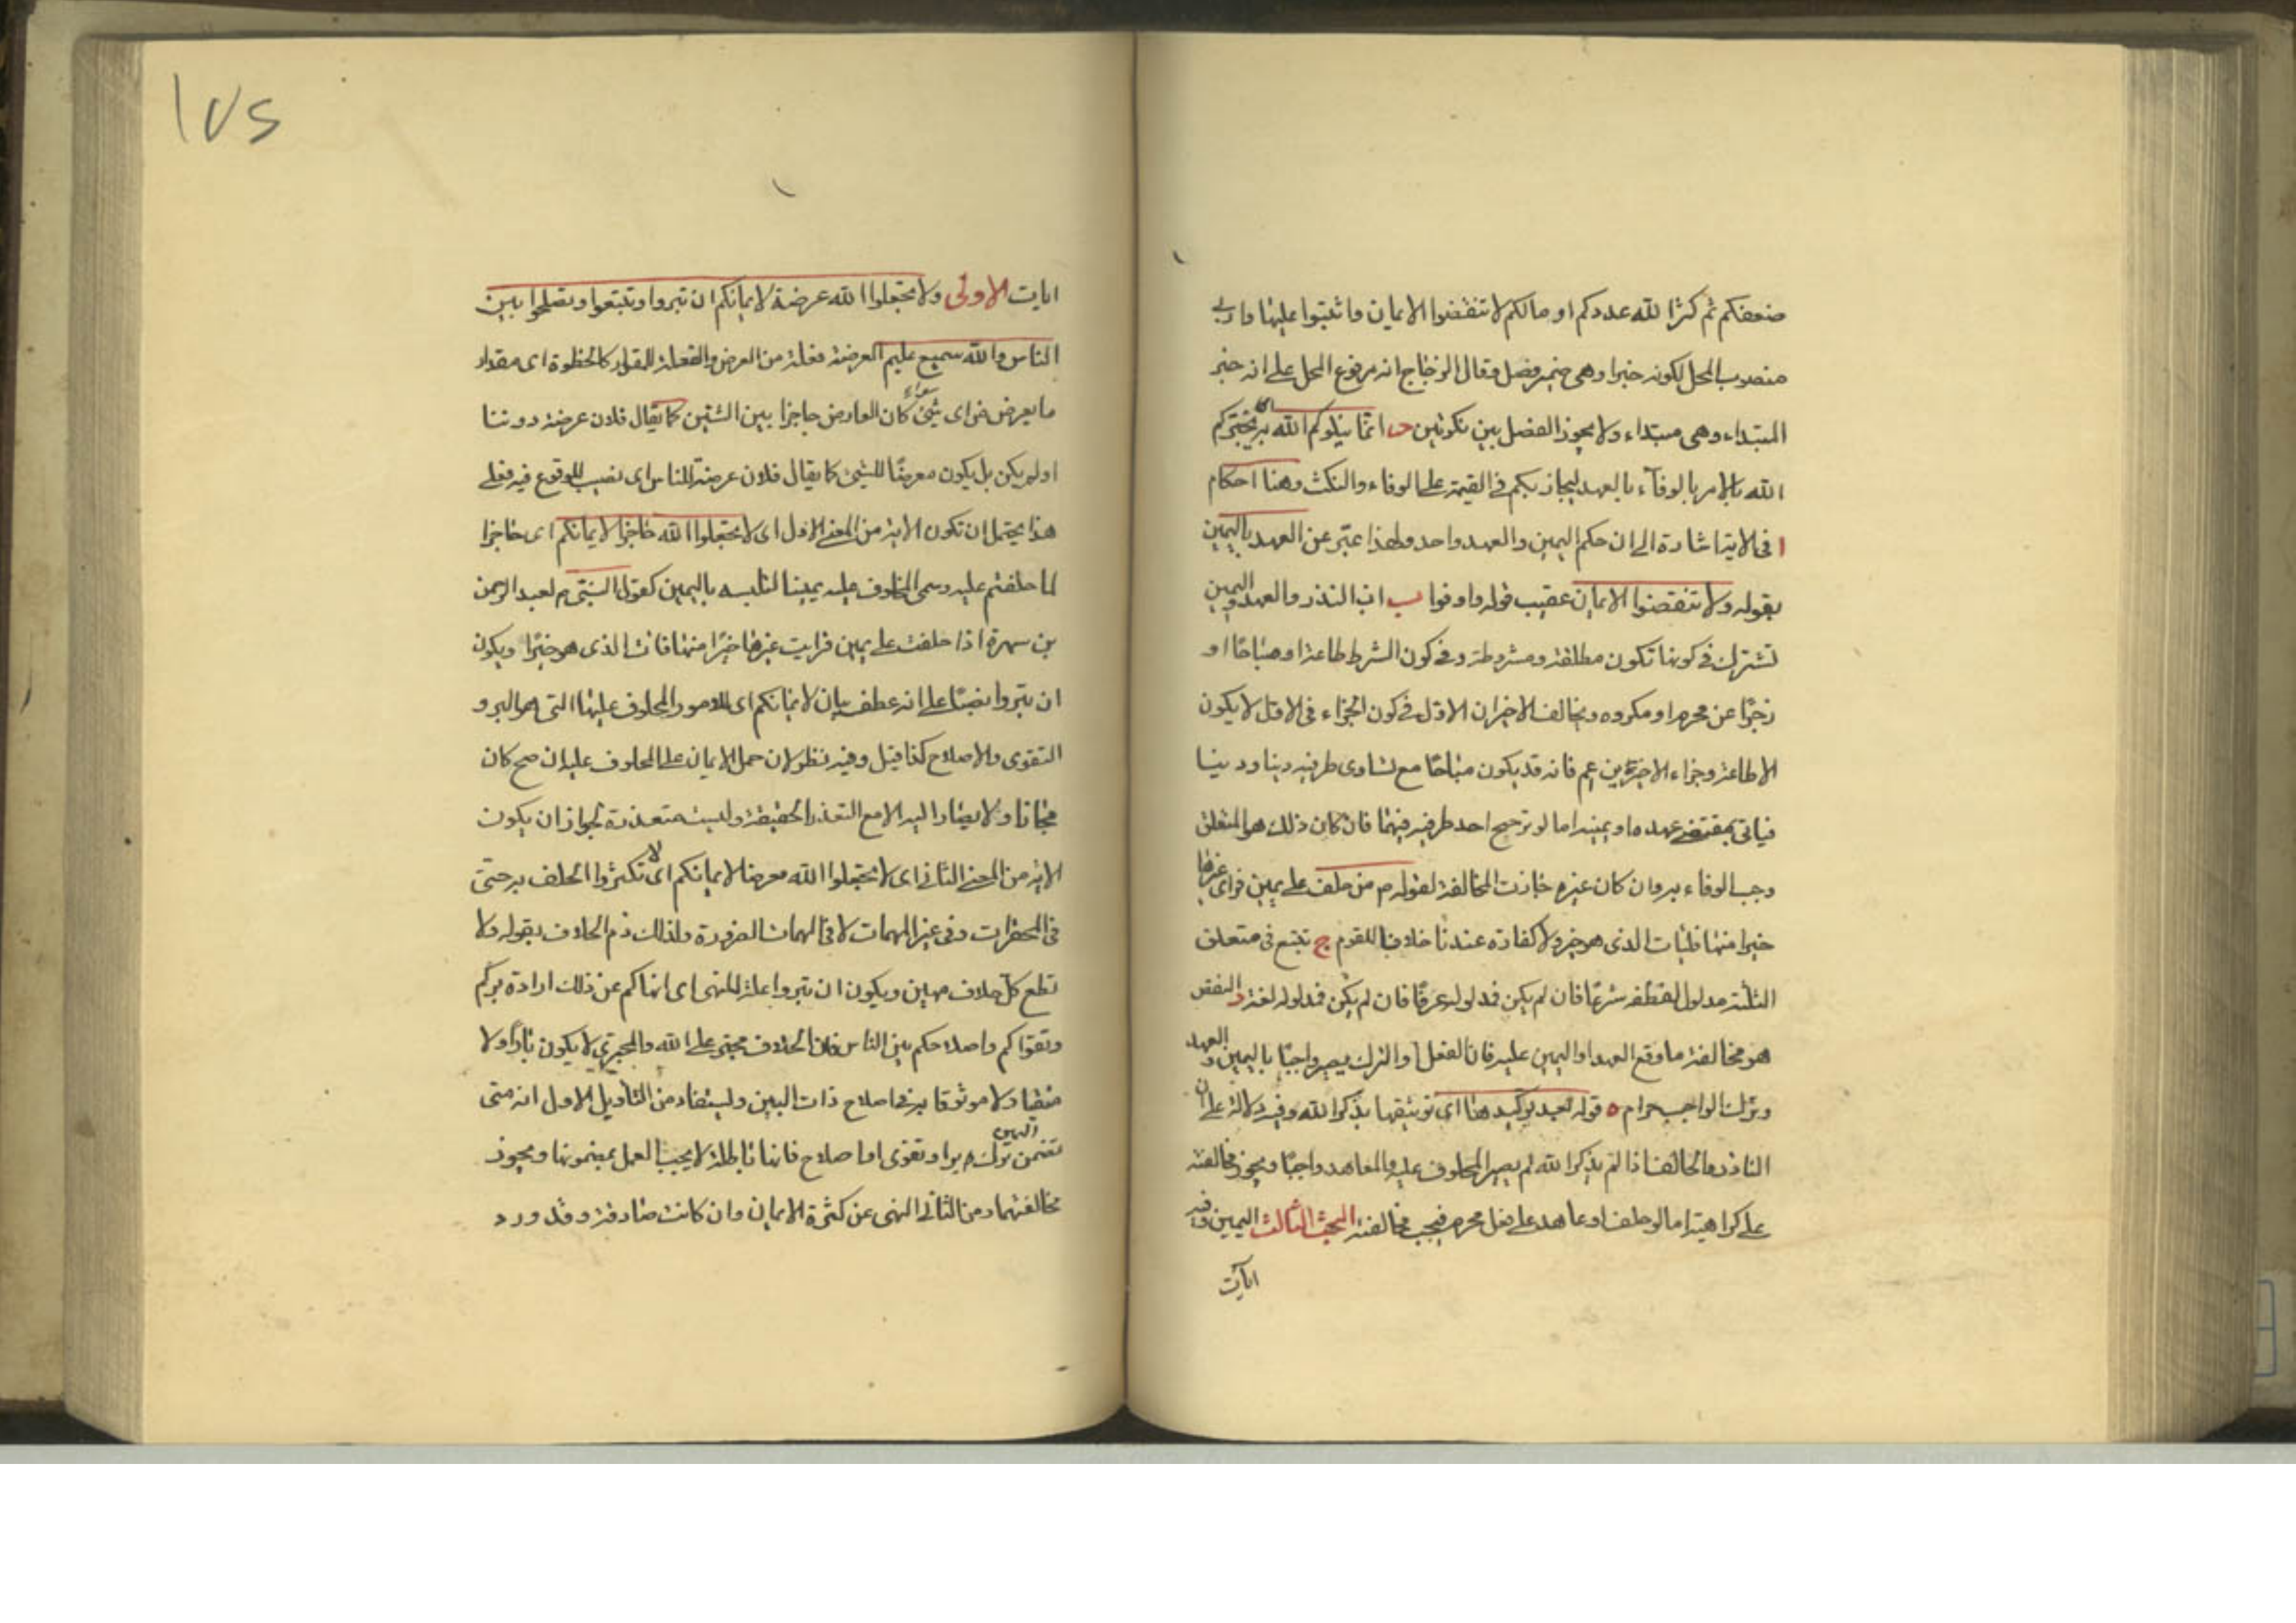 ضعفكم ثم كثر الله عددكم او مالكم لا تنقضوا الايمان واثبتوا عليها واربى
منصوب المحل لكونه خبرا وهى ضمير فصل فقال الزجاج انه مرفوع المحل على انه خبر
المبتداء وهى مبتداء ولا يجوز الفصل بين نكرتين انما يبلوكم الله به اى يختبركم
الله بالامر بالوفآء بالعهد ليجازيكم فى القيمة على الوفاء والنكث وهنا احكام
ا فى الاية اشارة الى ان حكم اليمين والعهد واحد ولهذا عبّر عن العهد باليمين
بقوله ولا تنقضوا الايمان عقيب قوله واوفوا ب ان النذر والعهد واليمين
تشترك فى كونها تكون مطلقة ومشروطة وفى كون الشرط طاعة او مباحًا او
زجرًا عن محرم او مكروه ويخالف الاخيران الاول فى كون الجزاء فى الاول لا يكون
الا طاعة وجزاء الاخيرين اعم فانه قد يكون مباحًا مع تساوى طرفيه دينا ودنيا
فياتى بمقتضى عهده او يمينه اما لو ترجح احد طرفيه فيهما فان كان ذلك هو المتعلق
وجب الوفاء به وان كان غيره جازت المخالفة لقوله م من حلف على يمين فراى غيرها
خيرا منها فليات الذى هو خير ولا كفارة عندنا خلافا للقوم ج تتبع فى متعلق
الثلثة مدلول لفظه شرعًا فان لم يكن فمدلوله عرفًا فان لم يكن فمدلوله لغة د النقض
هو مخالفة ما وقع العهد او اليمين عليه فان الفعل او الترك يصير واجبًا باليمين والعهد
وترك الواجب حرام ه قوله بعد توكيدها اى توثيقها بذكر الله وفيه دلالة على ان
الناذر والحالف اذا لم يذكر الله لم يصير المحلوف عليه والمعاهد واجبًا ويجوز مخالفته
على كراهية اما لو حلف او عاهد على فعل محرم فيجب مخالفته البحث الثالث اليمين وفيه
ايات
١٧٥
ايات الاولى ولا تجعلوا الله عرضة لايمانكم ان تبروا وتتقوا وتصلحوا بين
الناس والله سميع عليم العرضة فعلة من العرض والفعلة للمقدار كالخطوة اى مقدار
ما يعرض من اى شئ سواء كان العارض حاجزا بين الشيئين كما يقال فلان عرضة دوننا
او لم يكن بل يكون معرضًا للشئ كما يقال فلان عرضة للناس اى نصيب للوقوع فيه فعلى
هذا يحتمل ان تكون الاية من المعنى الاول اى لا تجعلوا الله حاجزا لايمانكم اى حاجزا
لما حلفتم عليه وسمى المحلوف عليه يمينا لتلبسه باليمين كقول النبى م لعبد الرحمن
بن سمرة اذا حلفت على يمين فرايت غيرها خيرًا منها فات الذى هو خيرًا ويكون
ان تبروا نصبًا على انه عطف بيان لايمانكم اى للامور المحلوف عليها التى هى البر و
التقوى والاصلاح كذا قيل وفيه نظر لان حمل الايمان على المحلوف عليه ان صح كان
مجازا ولا يصار اليه الا مع التعذر الحقيقة وليست متعذرة لجواز ان يكون
الاية من المعنى الثانى اى لا تجعلوا الله معرضا لايمانكم اى لا تكثروا الحلف به حتى
فى المحقرات وفى غير المهمات لا فى المهمات الضرورة ولذلك ذم الحلاف بقوله ولا
تطع كل حلاف مهين ويكون ان تبروا علة للنهى اى انهاكم عن ذلك ارادة بركم
وتقواكم واصلاحكم بين الناس فان الحلاف مجترئ على الله والمجترئ لا يكون بارًا ولا
متقيا ولا موثوقا به فى اصلاح ذات البين وليستفاد من التأويل الاول انه متى
تضمن اليمين ترك بر او تقوى او اصلاح فانها باطلة لا يجب العمل بمضمونها ويجوز
مخالفتها ومن الثانى النهى عن كثرة الايمان وان كانت صادقة وقد ورد